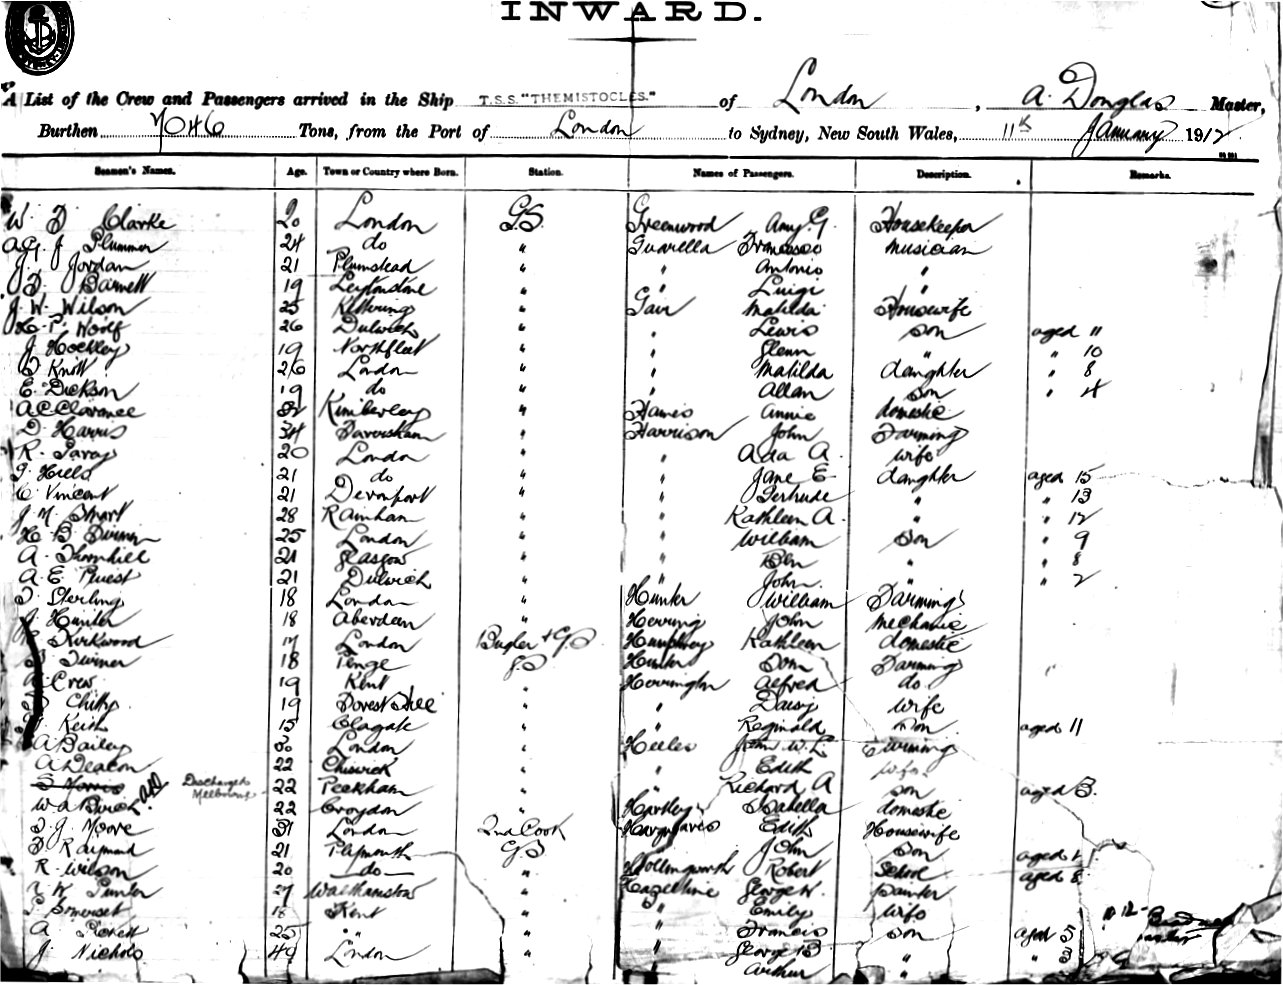 INWARD.
A List of the Crew and Passengers arrived in the Ship T.S.S. "THEMISTOCLES." of London, A. Douglas Master,
Burthen 7046 Tons, from the Port of London to Sydney, New South Wales, 11th January 1912
Seamen's Names. Age. Town or Country where Born. Station. Names of Passengers. Description. Remarks.
W. D. Clarke 20 London G.S. Greenwood Amy. G. Housekeeper
A. G. J. Plummer 24 do " Guarella Francesco musician
J. Jordan 21 Plumstead " " Antonio "
Barnett 19 Leytonstone " " Luigi "
J. W. Wilson 25 Kettering " Gair Matilda Housewife
H. P. Woolf 26 Dulwich " " Lewis son aged 11
J. Hockley 19 Northfleet " " Glenn " " 10
Knott 26 London " " Matilda daughter " 8
E. Dickson 19 do " " Allan son " 4
A C Clarence 32 Kimberley " Hames Annie domestic
D. Harris 34 Faversham " Harrison John Farming
R. 20 London " " Ada A. wife
Hield 21 do " " Jane E. daughter aged 15
C. Vincent 21 Devonport " " Gertrude " " 13
J. M. Smart 28 Rainham " " Kathleen A. " " 12
H. B. 25 London " " William son " 9
A. Thornhill 21 Glasgow " " Ben " " 8
A. E. Priest 21 Dulwich " " John. " " 2
Sterling 18 London " Hunter William Farming
J. Hunter 18 Aberdeen " Herring John Mechanic
Kirkwood 17 London Bugler + GS Humphrey Kathleen domestic
18 Penge G.S Hunter Tom Farming
A. Crew 19 Kent " Herrington Alfred do
Chitty 19 Forest Hill " " Daisy wife
Keith 15 Claygate " " Reginald son aged 11
A Bailey 30 London " Heeles John W. L. Farming
A Deacon 22 Chiswick " " Edith wife
S Morris Discharged Melbourne 22 Peckham " " Richard A son aged 3.
W A Birch 22 Croydon " Hartley Isabella domestic
J. Moore 31 London 2nd Cook Hargreaves Edith Housewife
Raymond 21 Plymouth GS " John son aged
R. Wilson 20 do " Hollingworth Robert School aged 8
W. 27 Walthamstow " Hazeltine George W. painter
Somerset 18 Kent " " Emily wife
A 25 " " " " Francis son aged
J. Nichols 49 London " " George B " "
" Arthur "